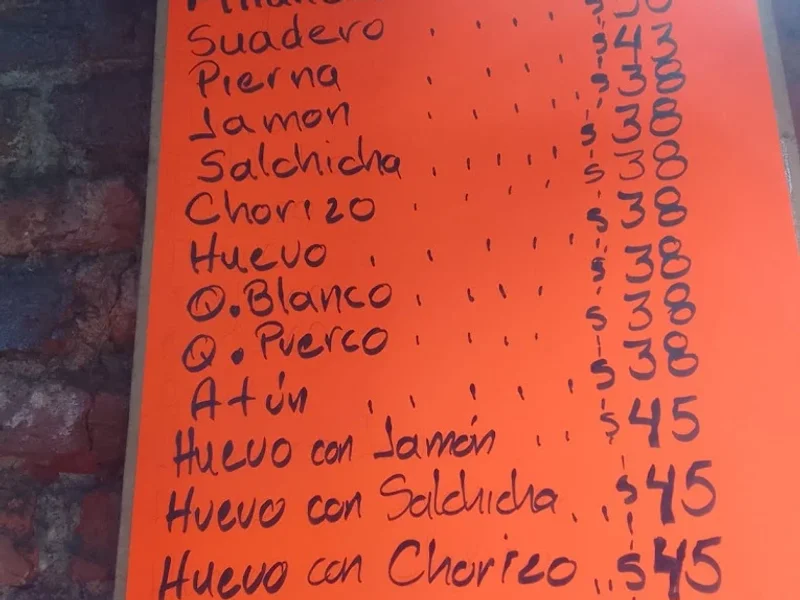 Suadero . . . . $
Pierna . . . . $ 43
Jamon . . . . $ 38
Salchicha . . . . $ 38
Chorizo . . . . $ 38
Huevo . . . . $ 38
Q. Blanco . . . . $ 38
Q. Puerco . . . . $ 38
Atún . . . . $ 38
Huevo con Jamón . . $ 45
Huevo con Salchicha . . $ 45
Huevo con Chorizo . . $ 45